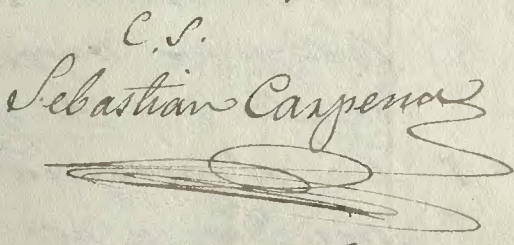 C. S.
Sebastian Carpena